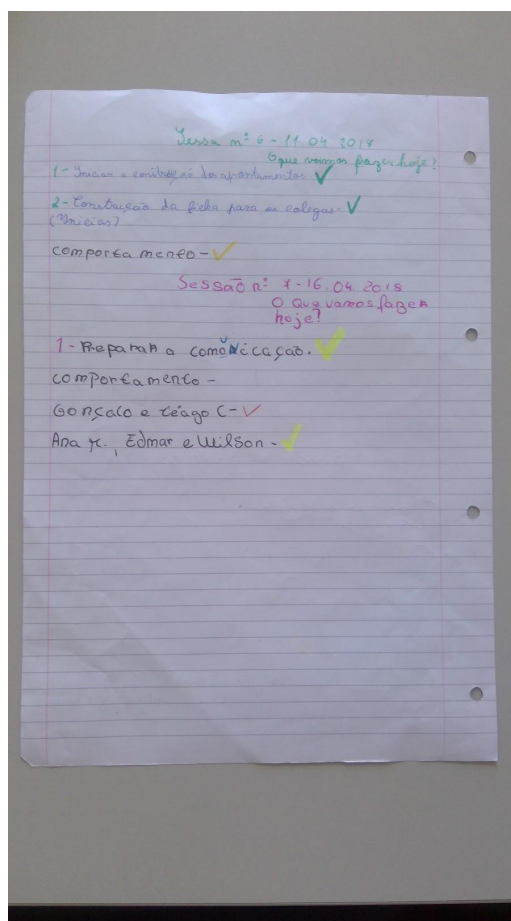 Sessa nº 6 - 11 04 2018
O que vamos fazer hoje?
1 - Iniciar a construção dos apontamentos. ✓
2 - Construção da ficha para os colegas. ✓
(Inicias)
comportamento - ✓
Sessão nº 7 - 16.04 2018
O que vamos fazer
hoje?
1 - Preparar a comunicação. ✓
comportamento -
Gonçalo e tiago C - ✓
Ana M., Edmar e Wilson - ✓